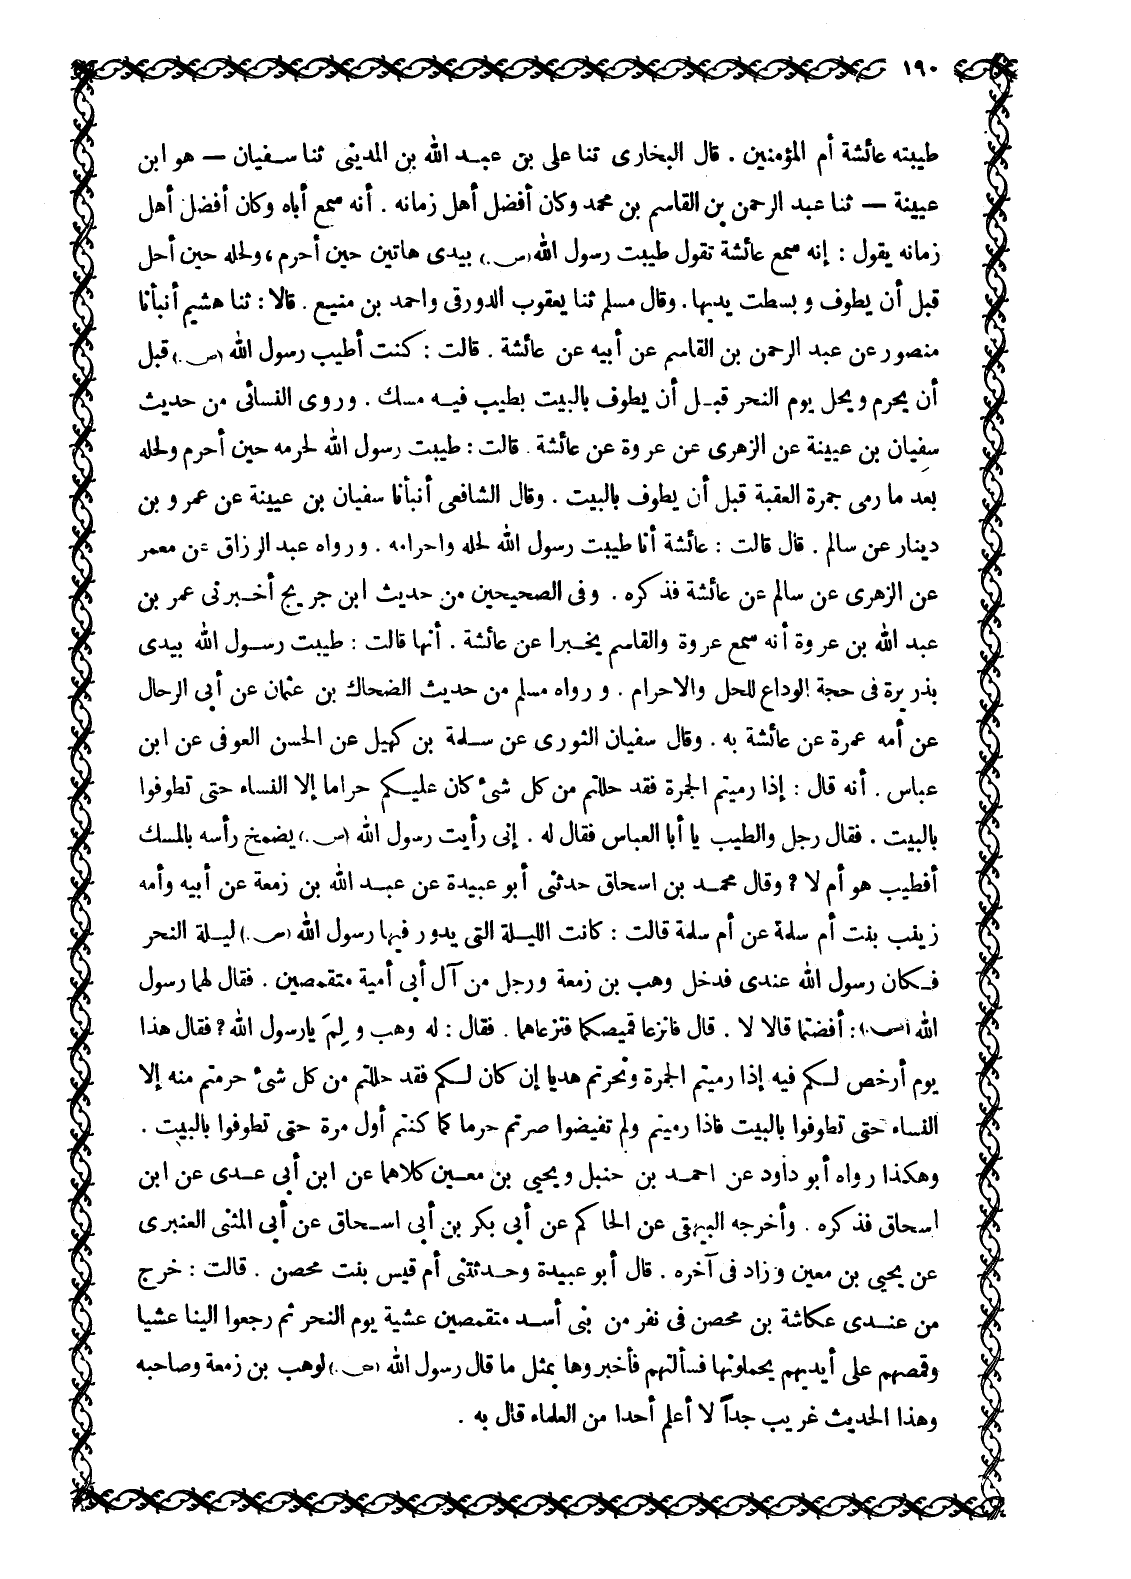 ١٩٠
طيبته عائشة أم المؤمنين . قال البخارى ثنا على بن عبد الله بن المدينى ثنا سفيان — هو ابن
عيينة — ثنا عبد الرحمن بن القاسم بن محمد وكان أفضل أهل زمانه . أنه سمع أباه وكان أفضل أهل
زمانه يقول : إنه سمع عائشة تقول طيبت رسول الله (ص.) بيدى هاتين حين أحرم ، ولحله حين أحل
قبل أن يطوف و بسطت يديها . وقال مسلم ثنا يعقوب الدورقى واحمد بن منيع . قالا : ثنا هشيم أنبأنا
منصور عن عبد الرحمن بن القاسم عن أبيه عن عائشة . قالت : كنت أطيب رسول الله (ص.) قبل
أن يحرم ويحل يوم النحر قبل أن يطوف بالبيت بطيب فيه مسك . وروى النسائى من حديث
سفيان بن عيينة عن الزهرى عن عروة عن عائشة . قالت : طيبت رسول الله لحرمه حين أحرم ولحله
بعد ما رمى جمرة العقبة قبل أن يطوف بالبيت . وقال الشافعى أنبأنا سفيان بن عيينة عن عمرو بن
دينار عن سالم . قال قالت : عائشة أنا طيبت رسول الله لحله واحرامه . ورواه عبد الرزاق عن معمر
عن الزهرى عن سالم عن عائشة فذكره . وفى الصحيحين من حديث ابن جريج أخبرنى عمر بن
عبد الله بن عروة أنه سمع عروة والقاسم يخبرا عن عائشة . أنها قالت : طيبت رسول الله بيدى
بذريرة فى حجة الوداع للحل والاحرام . ورواه مسلم من حديث الضحاك بن عثمان عن أبى الرحال
عن أمه عمرة عن عائشة به . وقال سفيان الثورى عن سلمة بن كهيل عن الحسن العوفى عن ابن
عباس . أنه قال : إذا رميتم الجمرة فقد حللتم من كل شئ كان عليكم حراما إلا النساء حتى تطوفوا
بالبيت . فقال رجل والطيب يا أبا العباس فقال له . إنى رأيت رسول الله (ص.) يضمخ رأسه بالمسك
أفطيب هو أم لا ؟ وقال محمد بن اسحاق حدثنى أبو عبيدة عن عبد الله بن زمعة عن أبيه وأمه
زينب بنت أم سلمة عن أم سلمة قالت : كانت الليلة التى يدور فيها رسول الله (ص.) ليلة النحر
فكان رسول الله عندى فدخل وهب بن زمعة ورجل من آل أبى أمية متقمصين . فقال لهما رسول
الله (ص.) : أفضتما قالا لا . قال فانزعا قميصكما فنزعاهما . فقال : له وهب و لِمَ يارسول الله ؟ فقال هذا
يوم أرخص لكم فيه إذا رميتم الجمرة ونحرتم هديا إن كان لكم فقد حللتم من كل شئ حرمتم منه إلا
النساء حتى تطوفوا بالبيت فاذا رميتم ولم تفيضوا صرتم حرما كما كنتم أول مرة حتى تطوفوا بالبيت .
وهكذا رواه أبو داود عن احمد بن حنبل ويحيى بن معين كلاهما عن ابن أبى عدى عن ابن
اسحاق فذكره . وأخرجه البيهقى عن الحاكم عن أبى بكر بن أبى اسحاق عن أبى المثنى العنبرى
عن يحيى بن معين وزاد فى آخره . قال أبو عبيدة وحدثتنى أم قيس بنت محصن . قالت : خرج
من عندى عكاشة بن محصن فى نفر من بنى أسد متقمصين عشية يوم النحر ثم رجعوا الينا عشيا
وقمصهم على أيديهم يحملونها فسألتهم فأخبروها بمثل ما قال رسول الله (ص.) لوهب بن زمعة وصاحبه
وهذا الحديث غريب جداً لا أعلم أحدا من العلماء قال به .